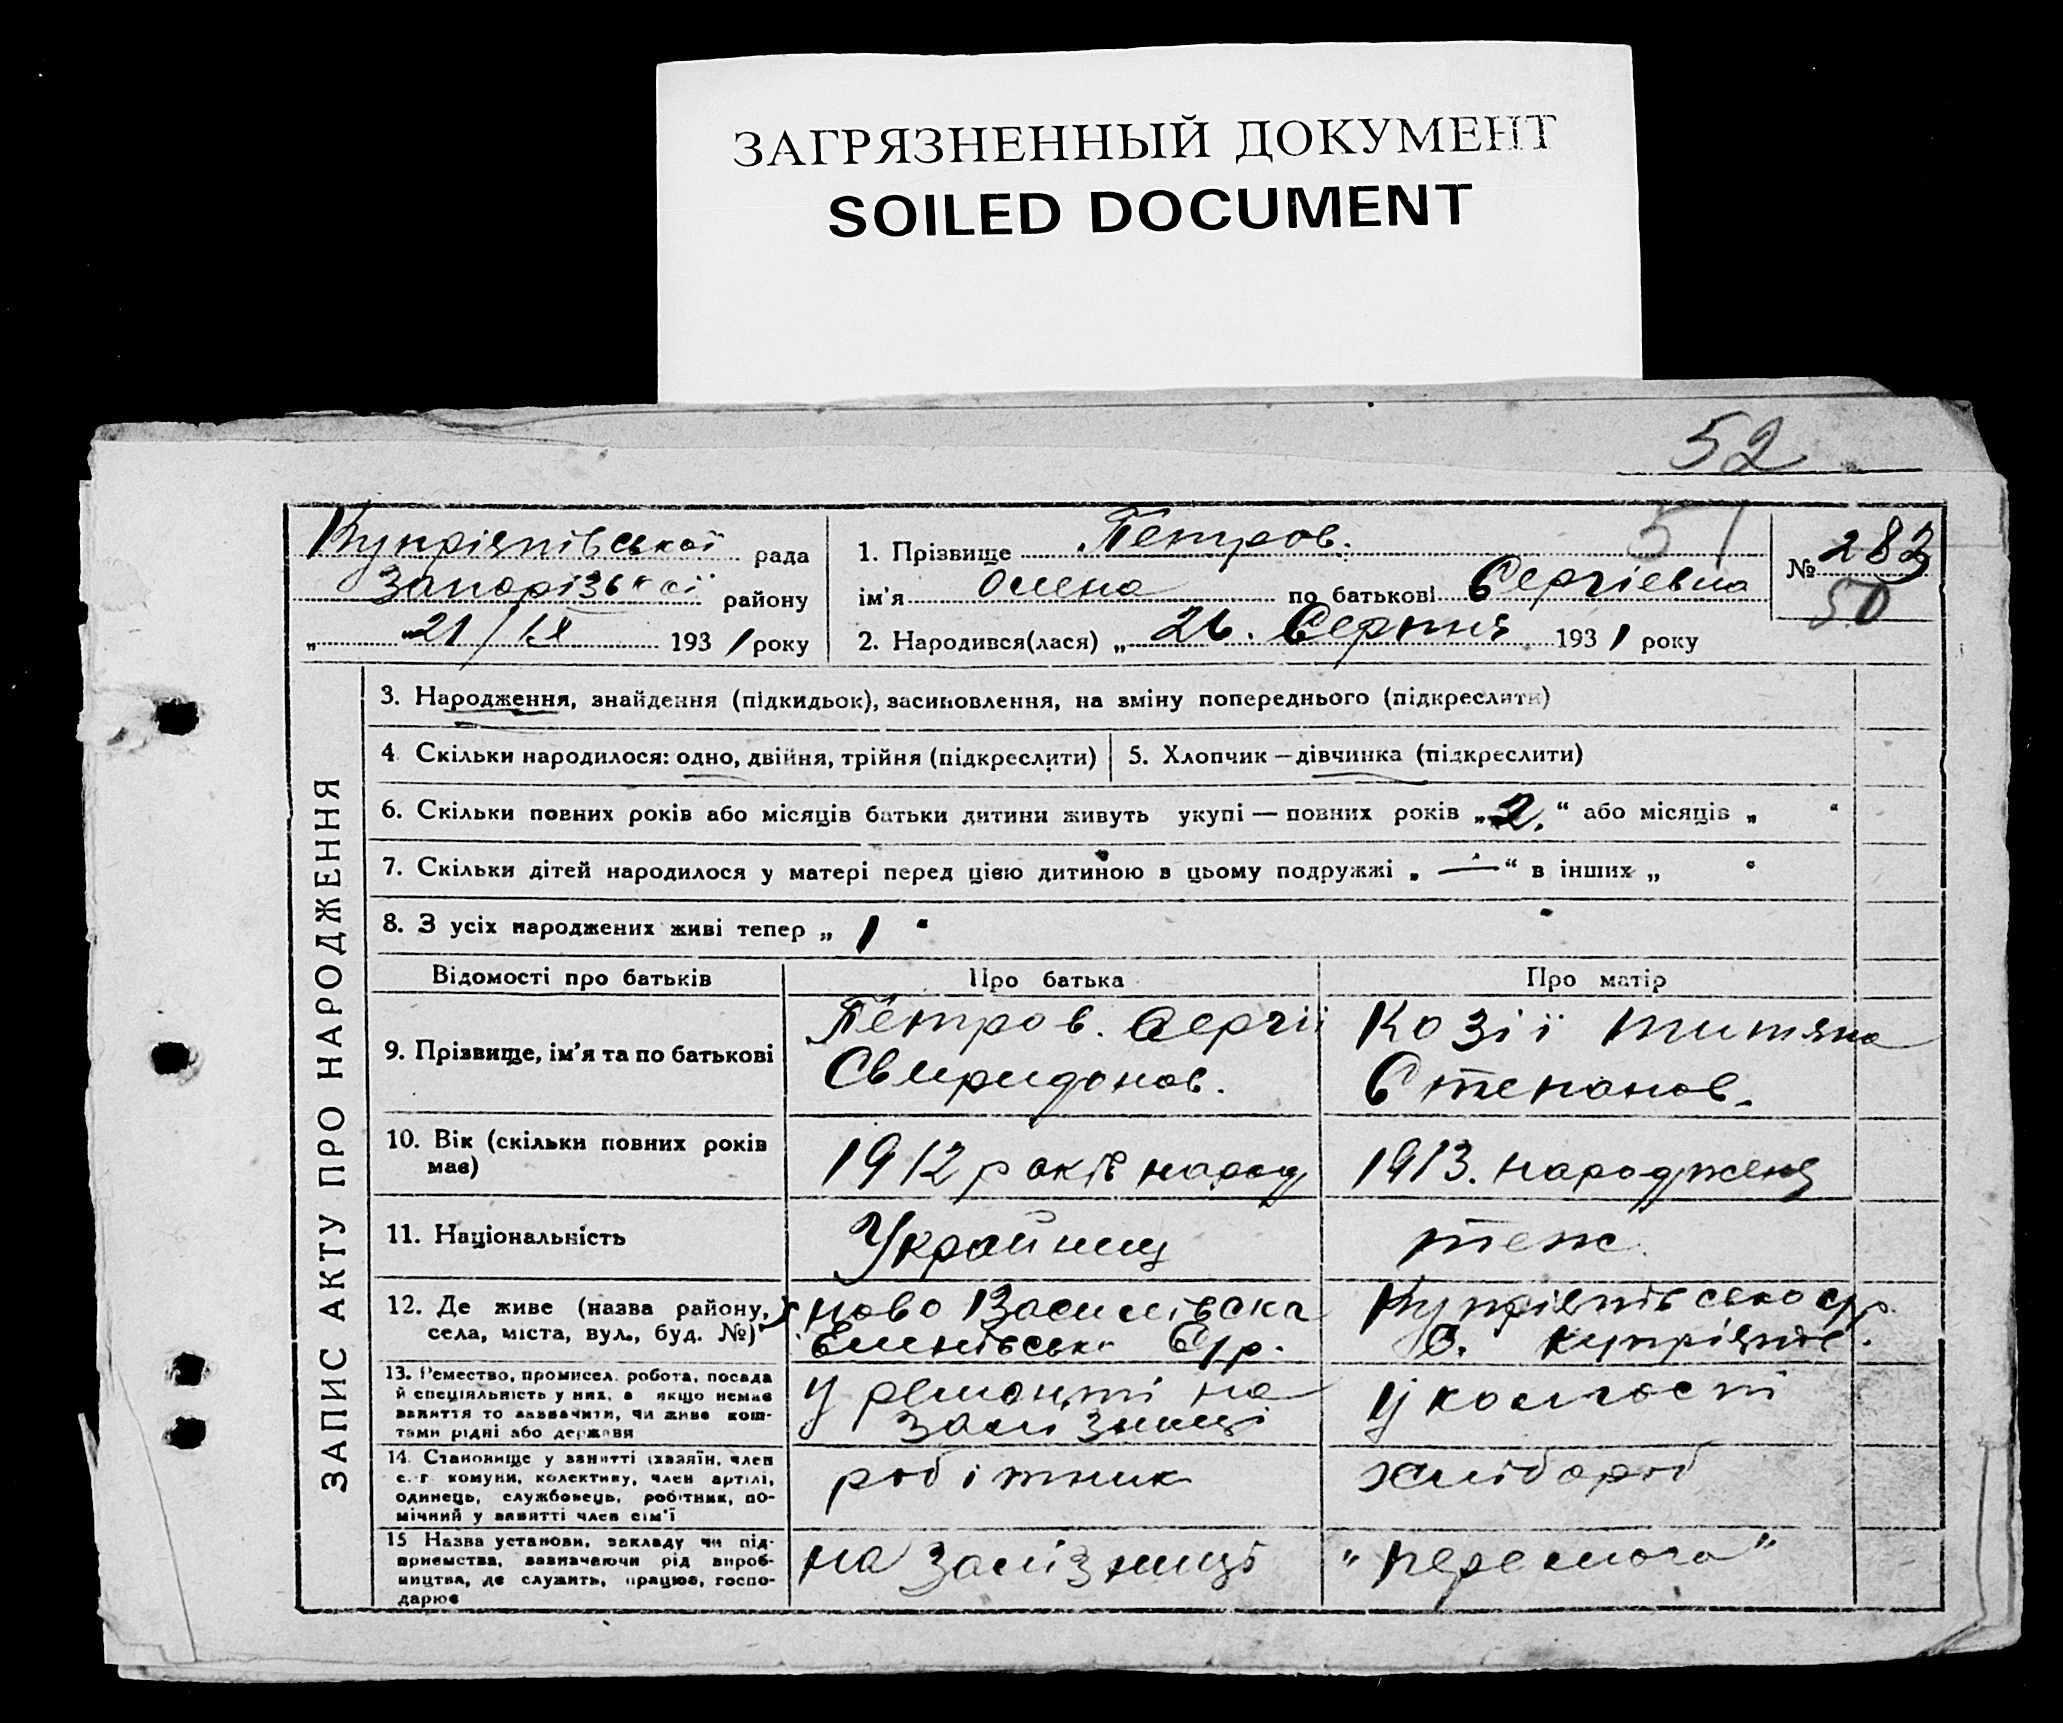 ЗАГРЯЗНЕННЫЙ ДОКУМЕНТ
SOILED DOCUMENT
52
Купріянівської рада
Запорізької району
„ 21/IX 1931 року
1. Прізвище Петров. 51
ім'я Олена по батькові Сергіевна
2. Народився(лася) „ 26. Серпня 1931 року
№ 283
50
ЗАПИС АКТУ ПРО НАРОДЖЕННЯ
3. Народження, знайдення (підкидьок), засиновлення, на зміну попереднього (підкреслити)
4. Скільки народилося: одно, двійня, трійня (підкреслити)
5. Хлопчик — дівчинка (підкреслити)
6. Скільки повних років або місяців батьки дитини живуть укупі — повних років „2.“ або місяців „ “
7. Скільки дітей народилося у матері перед цією дитиною в цьому подружжі „ — “ в інших „ “
8. З усіх народжених живі тепер „ 1 “
Відомості про батьків Про батька Про матір
9. Прізвище, ім'я та по батькові
Петров. Сергій
Свиридонов.
Козії Титяна
Степанов.
10. Вік (скільки повних років
має)
1912 років народ
1913. народженя
11. Національність
Українец
теж.
12. Де живе (назва району,
села, міста, вул., буд. №)
Ново Василівска
С/р.
Купріянівсько с/р.
С. Купріянів.
13. Ремество, промисел, робота, посада
й спеціяльність у них, а якщо немає
заняття то зазначити, чи живе кош-
тами рідні або держави
У ремонті на
залізниці
У колгоспі
14. Становище у занятті (хазяїн, член
с.-г. комуни, колективу, член артілі,
одинець, службовець, робітник, по-
мічний у занятті член сім'ї
робітник
хлібороб
15 Назва установи, закладу чи під-
приємства, зазначаючи рід вироб-
ництва, де служить, працює, госпо-
дарює
на залізниці
"перемога"